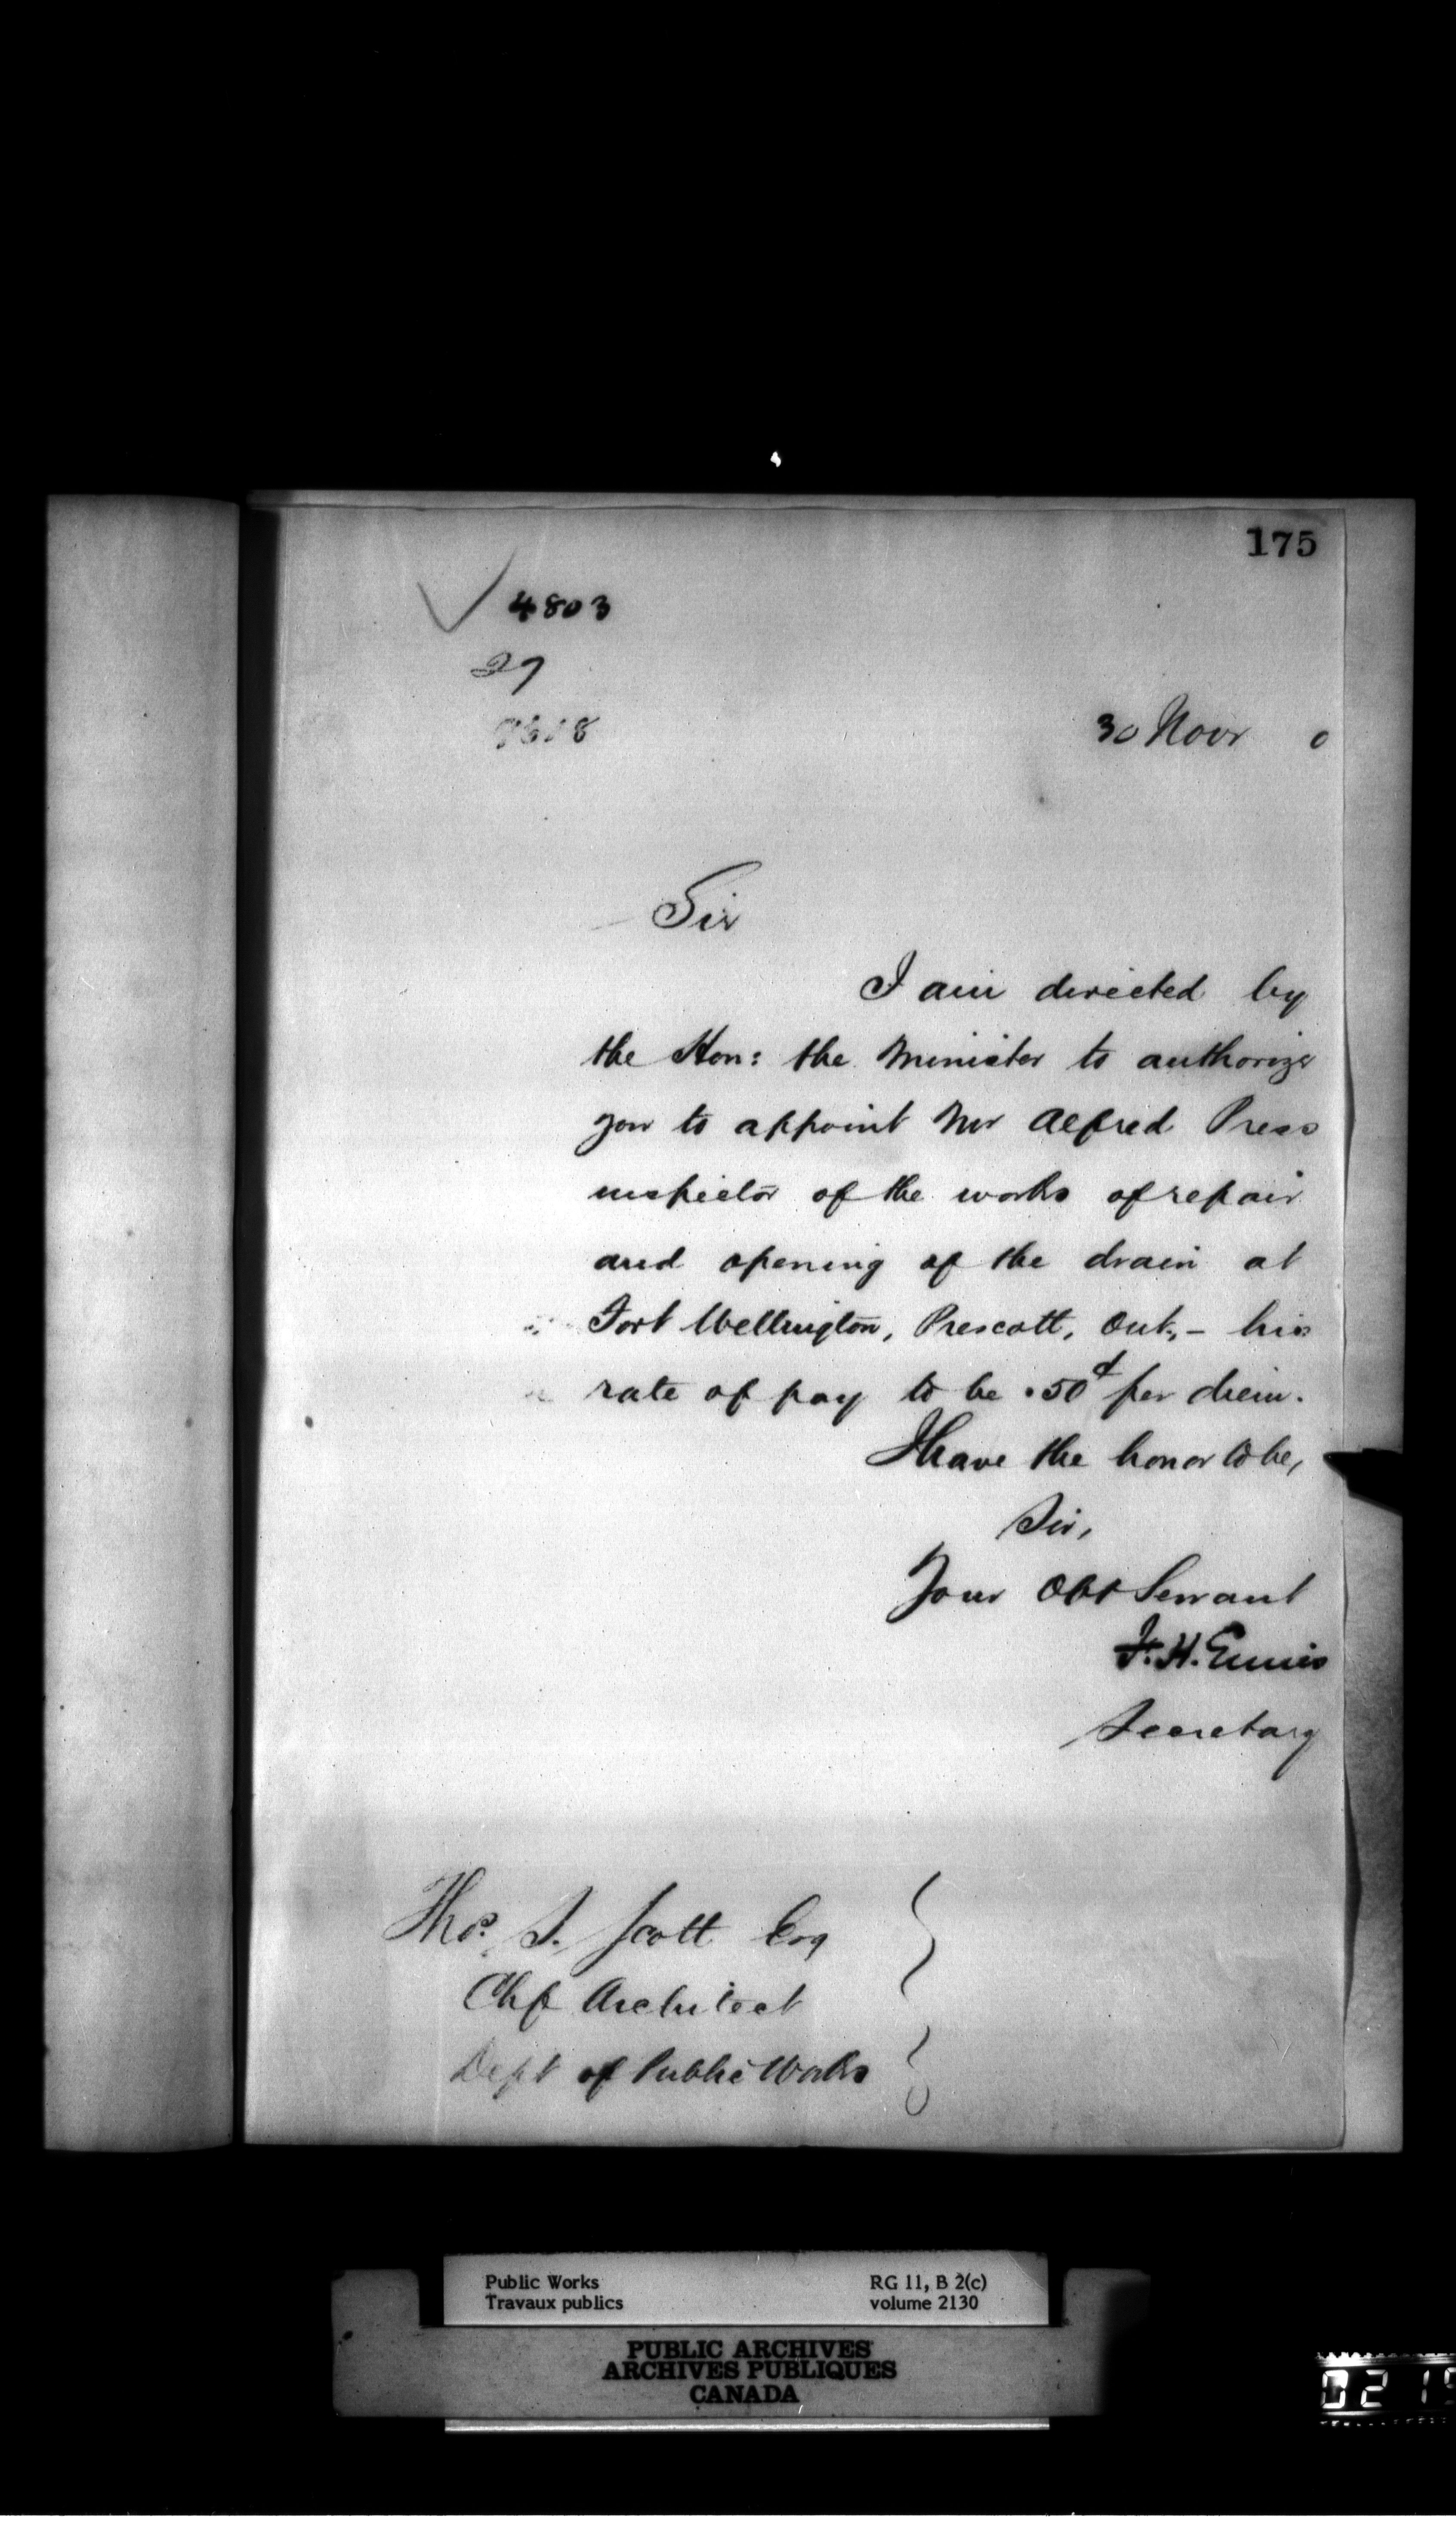 175
4803
27
7618
30 Novr 0
Sir
I am directed by
the Hon: the Minister to authorize
you to appoint Mr Alfred Press
inspector of the works of repair
and opening of the drain at
Fort Wellington, Prescott, Ont, - his
rate of pay to be .50 per diem.
I have the honor to be,
Sir,
Your Obt Servant
F. H. Ennis
Secretary
Thos. S. Scott Esq
Chf Architect
Dept of Public Works
Public Works
Travaux publics
RG 11, B 2(c)
volume 2130
PUBLIC ARCHIVES
ARCHIVES PUBLIQUES
CANADA